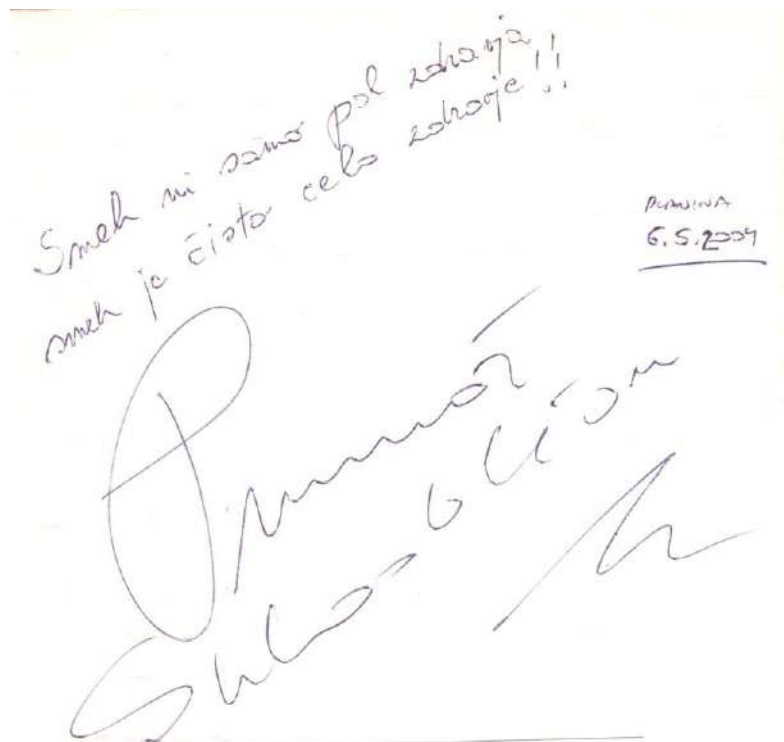 Smeh ni samo pol zdravja,
smeh je čisto celo zdravje!!
PLANINA
6.5.2009
Primož